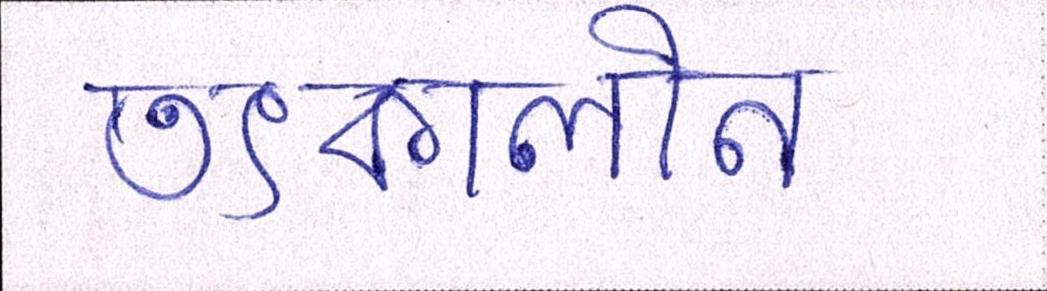 তৎকালীন